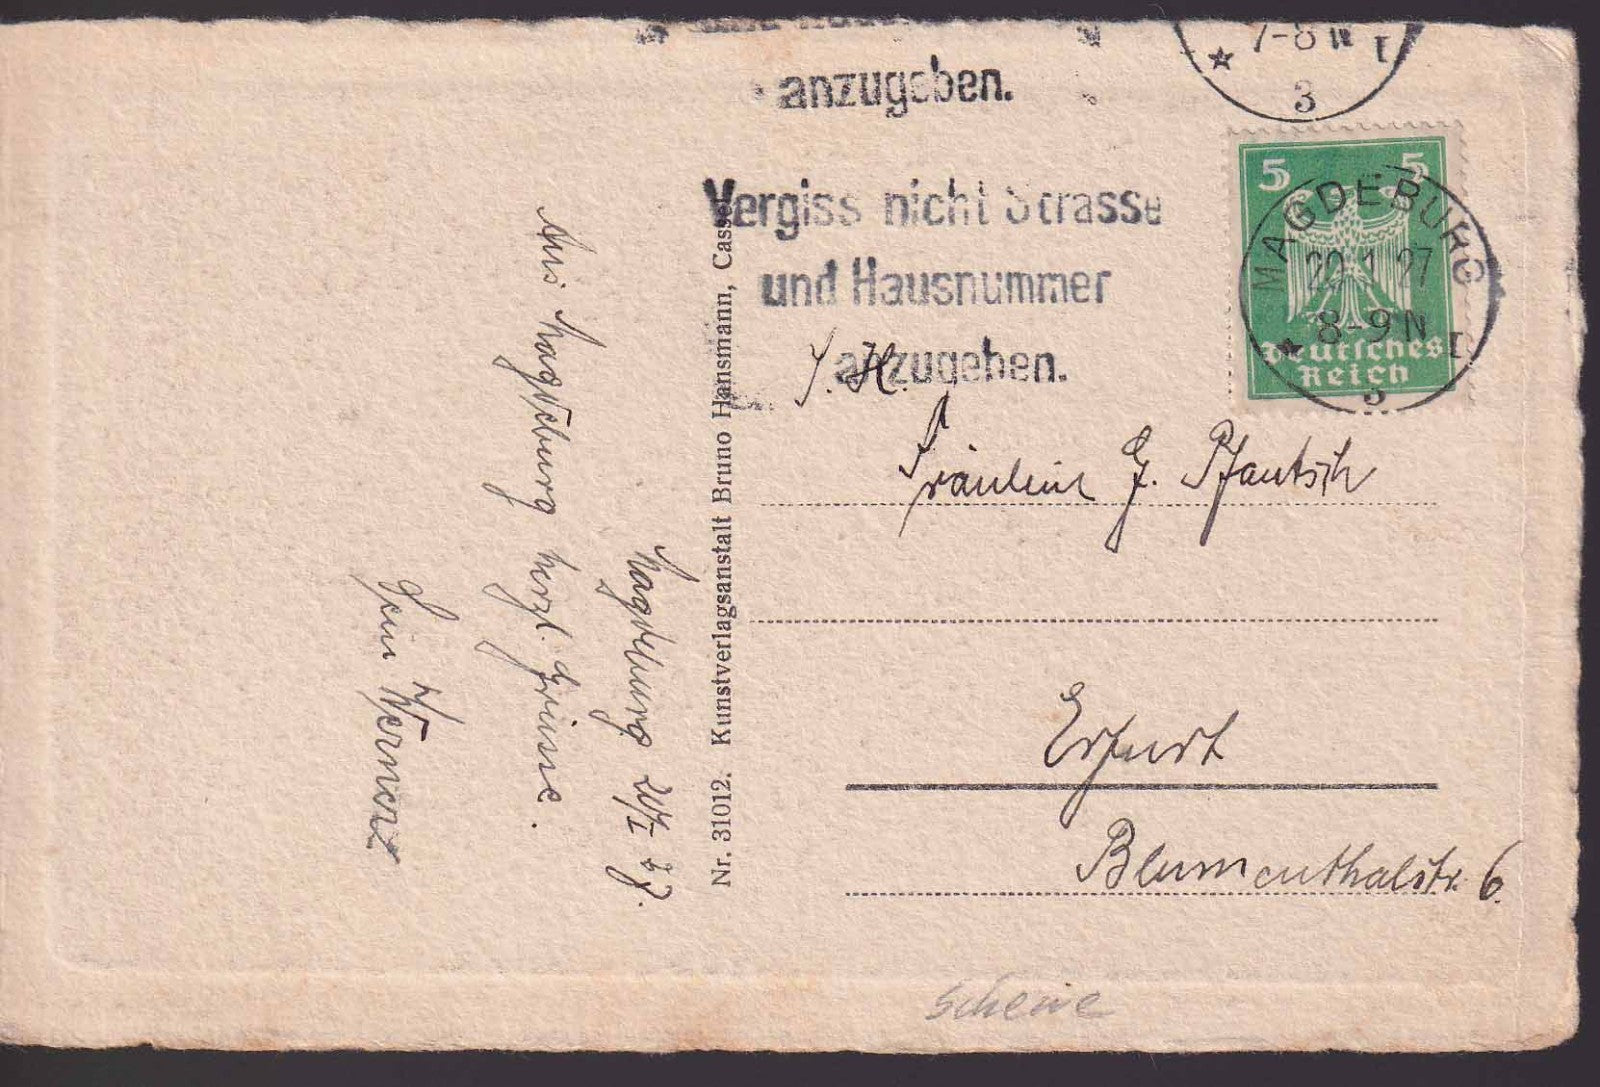 anzugeben.
7-8 N
1
3
Vergiss nicht Strasse
und Hausnummer
anzugeben.
5 5
Deutsches
Reich
MAGDEBURG
20.1.27
8-9 N
3
Magdeburg 20/I 27.
Aus Magdeburg herzl. Grüsse.
Dein Werner
Nr. 31012. Kunstverlagsanstalt Bruno Hansmann, Cassel
S. H.
Fräulein G. Pfautsch
Erfurt
Blumenthalstr. 6.